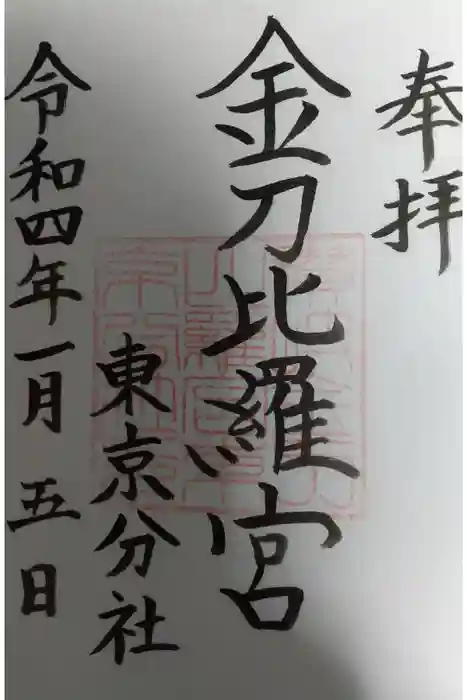 奉拝
金刀比羅宮
東京分社
令和四年一月五日